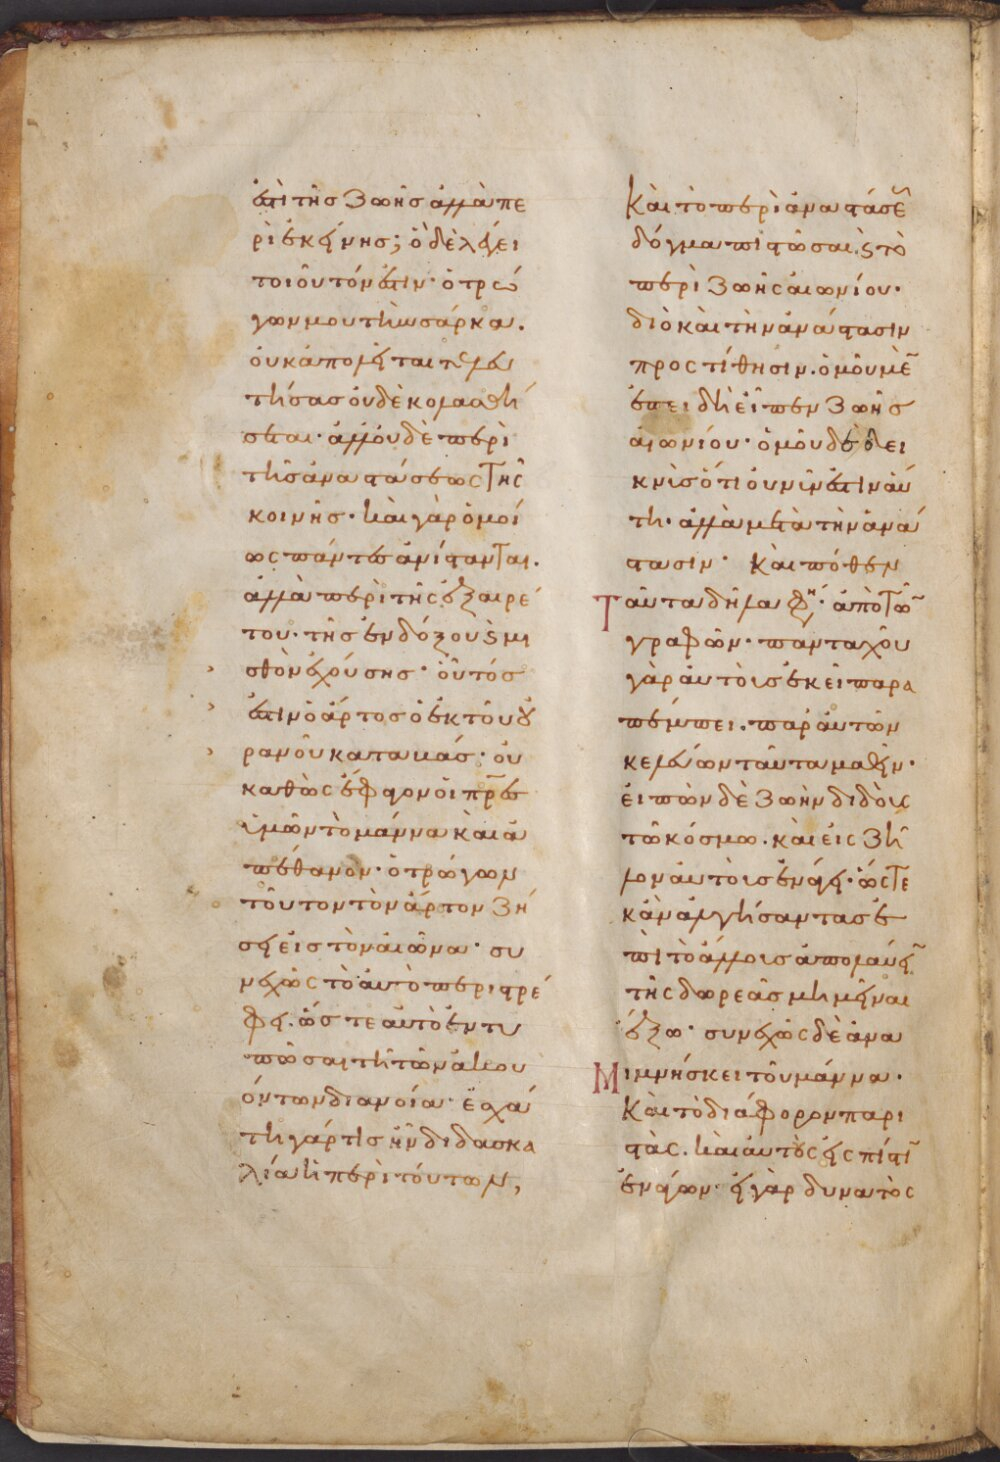 ἐστὶ τῆσ ζωῆσ ἀλλὰ πε
ρὶ ἐκείνησ; ὁ δὲ λέγει
τοιοῦτόν ἐστιν· ὁ τρώ
γων μου τὴν σάρκα.
οὐκ ἀπολεῖται τελευ
τήσασ οὐδὲ κολασθή
σεται· ἀλλ' οὐδὲ περὶ
τῆσ ἀναστάσεως τῆς
κοινῆσ· καὶ γὰρ ὁμοί
ως πάντεσ ἀνίστανται.
ἀλλὰ περὶ τῆς ἐξαιρέ
του· τῆσ ἐνδόξου ϛ μι
σθὸν ἐχούσησ· οὗτόσ
ἐστιν ὁ ἄρτοσ ὁ ἐκ τοῦ οὐ
ρανοῦ καταβάσ· οὐ
καθὼς ἔφαγον οἱ πρ̅εσ
ὑμῶν τὸ μάννα καὶ ἀ
πέθανον· ὁ τρώγων
τοῦτον τὸν ἄρτον ζή
σει εἰσ τὸν αἰῶνα· συ
νεχῶς τὸ αὐτὸ περιστρέ
φει. ὥστε αὐτὸ ἐντυ
πῶσαι τῆ τῶν ἀκου
όντων διανοία· ἐσχά
τη γάρ τισ ἦν διδασκα
λία ἡ περὶ τούτων,
Καὶ τὸ περὶ ἀναστάσεω
δόγμα πιστῶσαι ϛ τὸ
περὶ ζωῆς αἰωνίου·
διὸ καὶ τὴν ἀνάστασιν
προστίθησιν. ὁμοῦ μὲ̅
ἐπειδὴ εἶπεν ζωῆσ
αἰωνίου· ὁμοῦ δὲ δει
κνὺσ ὅτι οὐ νῦν ἐστιν αὕ
τη· ἀλλὰ μετὰ τὴν ἀνά
στασιν· Καὶ πόθεν
Ταῦτα δῆλα φη· ἀπὸ τῶ̅
γραφῶν· πανταχοῦ
γὰρ αὐτοὺσ ἐκεῖ παρα
πέμπει. παρ' αὐτῶν
κελεύων ταῦτα μαθεῖν·
εἰπὼν δὲ ζωὴν διδοὺς
τῶ κόσμω. καὶ εἰς ζῆ
λον αὐτοὺσ ἐνάγει· ὥστε
κἂν ἀλγήσαντασ ἐ
πὶ τὸ ἄλλουσ ἀπολαύει̅
τῆς δωρεᾶσ μὴ μεῖναι
ἔξω· συνεχῶς δὲ ἀνα
Μιμνήσκει τοῦ μάννα·
Καὶ τὸ διάφορον παρι
στὰς. καὶ αὐτοὺς εἰς πίστι̅
ἐνάγων· εἰ γὰρ δυνατὸς